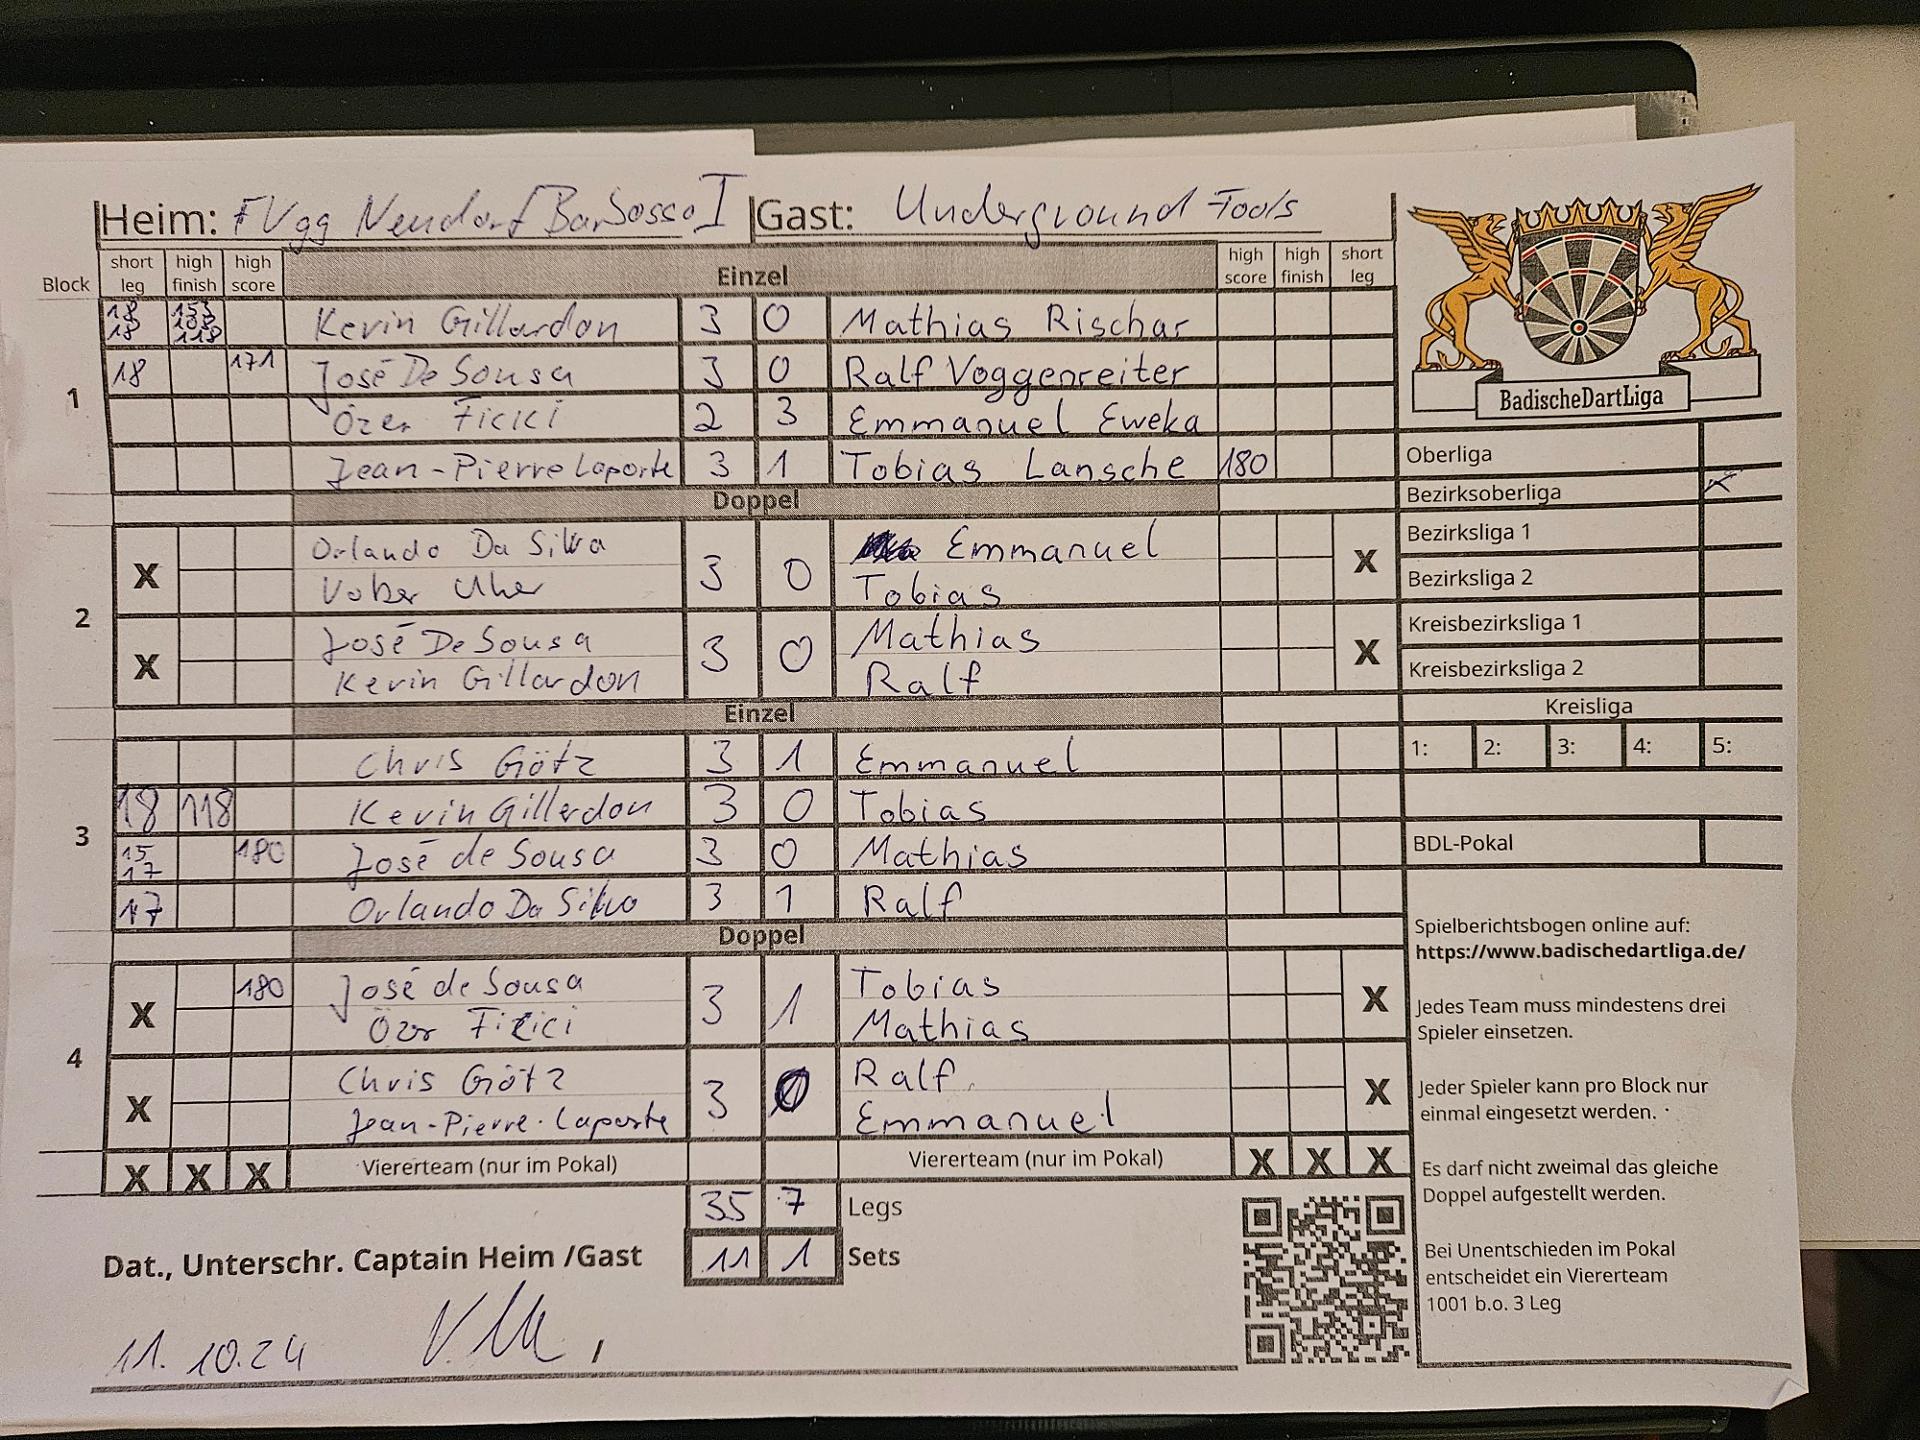 Heim: FVgg Neudorf Barbosso I Gast: Underground Tools
Block short leg high finish high score Einzel high score high finish short leg
1
18 18 153 103 118 Kevin Gillardon 3 0 Mathias Rischar
18 171 José De Sousa 3 0 Ralf Voggenreiter
Özer Ficici 2 3 Emmanuel Eweka
Jean-Pierre Laporte 3 1 Tobias Lansche 180
Doppel
2
X Orlando Da Silva 3 0 Emmanuel X
Uher Tobias
X José De Sousa 3 0 Mathias X
Kevin Gillardon Ralf
Einzel
3
Chris Götz 3 1 Emmanuel
18 118 Kevin Gillerdon 3 0 Tobias
15 17 180 José de Sousa 3 0 Mathias
17 Orlando Da Silva 3 1 Ralf
Doppel
4
X 180 José de Sousa 3 1 Tobias X
Özer Ficici Mathias
X Chris Götz 3 0 Ralf X
Jean-Pierre-Laporte Emmanuel
X X X Viererteam (nur im Pokal) Viererteam (nur im Pokal) X X X
35 7 Legs
Dat., Unterschr. Captain Heim /Gast 11 1 Sets
11.10.24
BadischeDartLiga
Oberliga
Bezirksoberliga X
Bezirksliga 1
Bezirksliga 2
Kreisbezirksliga 1
Kreisbezirksliga 2
Kreisliga
1: 2: 3: 4: 5:
BDL-Pokal
Spielberichtsbogen online auf:
https://www.badischedartliga.de/
Jedes Team muss mindestens drei
Spieler einsetzen.
Jeder Spieler kann pro Block nur
einmal eingesetzt werden.
Es darf nicht zweimal das gleiche
Doppel aufgestellt werden.
Bei Unentschieden im Pokal
entscheidet ein Viererteam
1001 b.o. 3 Leg